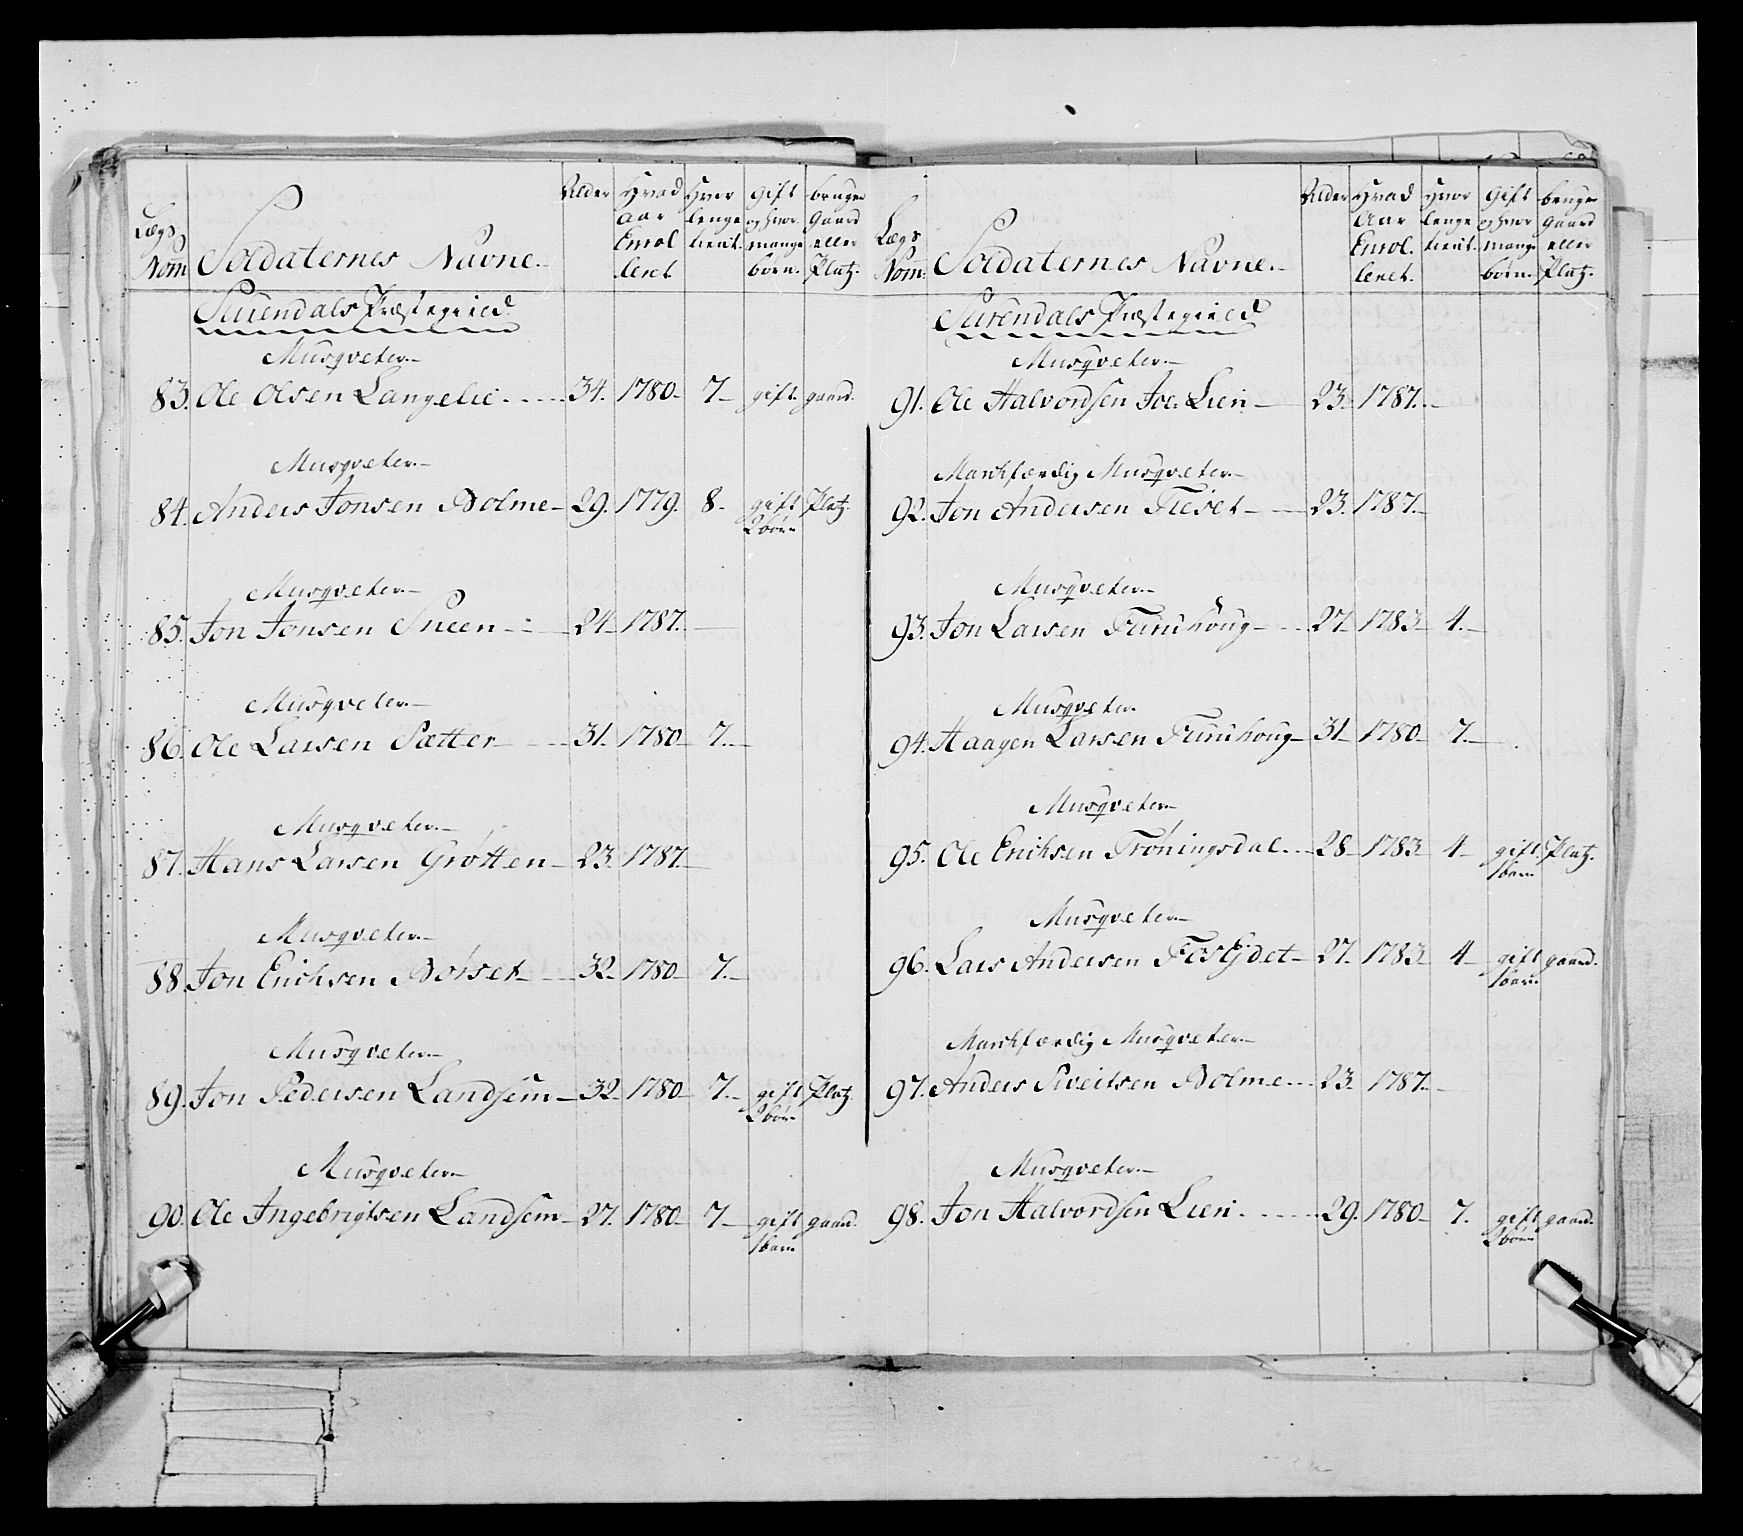 Lægs Nom | Soldaternes Navne. | Alder | Hvad Aar Enrolleret | Hvor lenge tient. | gift og hvor mange børn. | bruger Gaard eller Platz.
Surendals Præstegield
Musqveter.
83. Ole Olsen Langelie 34. 1780. 7 gift. gaard.
Musqveter.
84. Anders Jonsen Bolme 29. 1779. 8. gift 2 børn Platz.
Musqveter.
85. Jon Jonsen Sneen 24 1787.
Musqveter.
86. Ole Larsen Sætter 31. 1780 7.
Musqveter.
87. Hans Larsen Grøtten 23. 1787.
Musqveter.
88. Jon Erichsen Børset 32 1780 7.
Musqveter.
89. Jon Pedersen Landsem 32 1780 7. gift 2 børn Platz.
Musqveter.
90. Ole Ingebrigtsen Landsem 27. 1780 7 gift 1 barn gaard.
Lægs Nom: | Soldaternes Navne. | Alder | Hvad Aar Enrolleret. | Hvor lenge tient. | Gift og hvor mange børn. | bruger Gaard eller Platz.
Surendals Præstegield
Musqveter.
91. Ole Halvordsen Lien 23. 1787.
Marchfærdig Musqveter.
92. Jon Andersen Fiset 23. 1787.
Musqveter.
93. Jon Larsen Funihoug 27. 1783 4.
Musqveter.
94. Haagen Larsen Funihoug 31 1780 7.
Musqveter.
95. Ole Erichsen Trøningsdal 28 1783 4 gift 1 barn Platz.
Musqveter.
96. Lars Andersen 27. 1783 4 gift 1 barn gaard.
Marchfærdig Musqveter.
97. Anders Siveitsen Bolme 23. 1787.
Musqveter.
98. Jon Halvordsen Lien 29. 1780 7. gift 2 børn gaard.